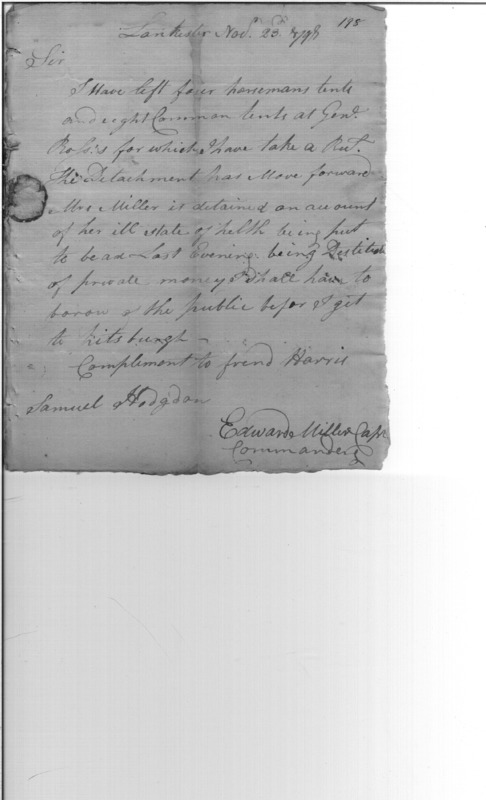 198
Lankester Nov. 23d. 1798
Sir
I Have left four horsemans tents
and eight Common tents at Genl.
Ross's for which I have take a Rect.
The Detachment has Move forward
Mrs Miller is detained on account
of her ill state of helth being put
to bead Last Evening. being Destitute
of private money I shall have to
borow of the public befor I get
to pitsburgh
Complement to frend Harris
Samuel Hodgdon
Edward Miller Capt
Commanding